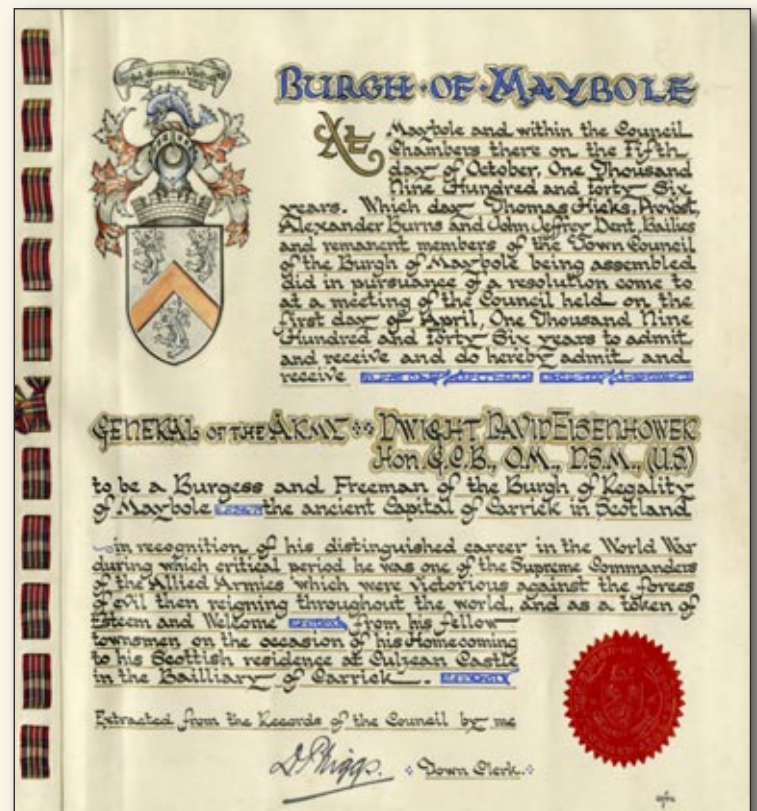 BURGH·OF·MAYBOLE
At Maybole and within the Council
Chambers there on the Fifth
day of October, One Thousand
Nine Hundred and Forty Six
years. Which day Thomas Hicks, Provost,
Alexander Burns and John Jeffrey Dent, Bailies
and remanent members of the Town Council
of the Burgh of Maybole being assembled
did in pursuance of a resolution come to
at a meeting of the Council held on the
first day of April, One Thousand Nine
Hundred and Forty Six years to admit
and receive and do hereby admit and
receive
GENERAL OF THE ARMY DWIGHT DAVID EISENHOWER
Hon. G.C.B., O.M., D.S.M., (U.S)
to be a Burgess and Freeman of the Burgh of Regality
of Maybole the ancient Capital of Carrick in Scotland
in recognition of his distinguished career in the World War
during which critical period he was one of the Supreme Commanders
of the Allied Armies which were victorious against the forces
of evil then reigning throughout the world, and as a token of
Esteem and Welcome from his fellow
townsmen on the occasion of his Homecoming
to his Scottish residence at Culzean Castle
in the Bailliary of Carrick.
Extracted from the Records of the Council by me
Town Clerk.